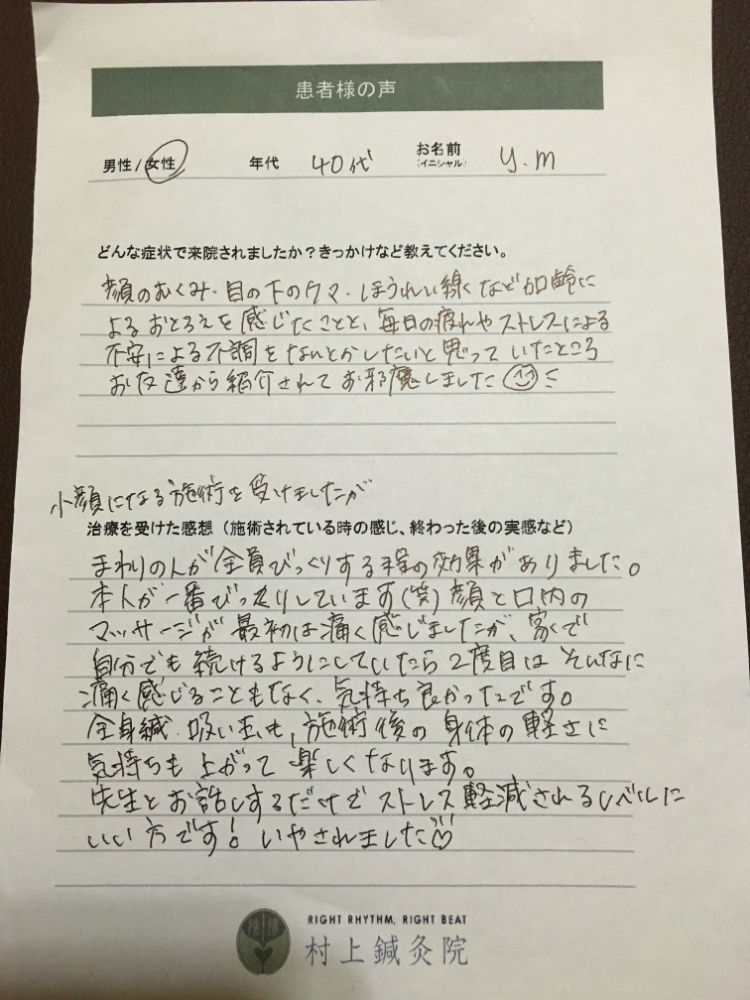 患者様の声
男性/女性 年代 40代 お名前(イニシャル) y.m
どんな症状で来院されましたか?きっかけなど教えてください。
顔のむくみ・目の下のクマ・ほうれい線などが加齢に
よるおとろえを感じたことと、毎日の疲れやストレスによる
不安による不調をなんとかしたいと思っていたところ
お友達から紹介されてお邪魔しました
小顔になる施術を受けましたが
治療を受けた感想(施術されている時の感じ、終わった後の実感など)
まわりの人が全員びっくりする程の効果がありました。
本人が一番びっくりしています(笑)顔と口内の
マッサージが最初は痛く感じましたが、家で
自分でも続けるようにしていたら2度目はそんなに
痛く感じることもなく、気持ち良かったです。
全身鍼・吸い玉も、施術後の身体の軽さに
気持ちも上がって楽しくなります。
先生とお話しするだけでストレス軽減されるレベルに
いい方です!いやされました♡
RIGHT RHYTHM, RIGHT BEAT
村上鍼灸院